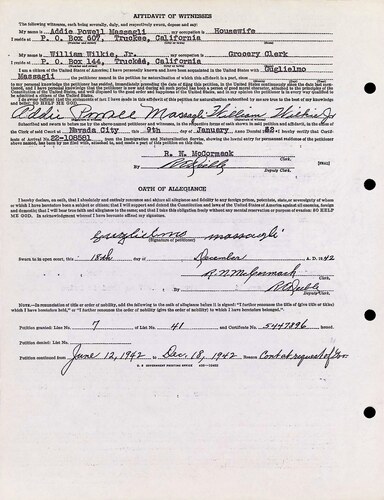 AFFIDAVIT OF WITNESSES
The following witnesses, each being severally, duly, and respectively sworn, depose and say:
My name is Addie Powell Massagli, my occupation is Housewife
I reside at P. O. Box 607, Truckee, California
My name is William Wilkie, Jr. my occupation is Grocery Clerk
I reside at P. O. Box 144, Truckee, California
I am a citizen of the United States of America; I have personally known and have been acquainted in the United States with Guglielmo
Massagli
be admitted a citizen of the United States.
I do swear (affirm) that the statements of fact I have made in this affidavit of this petition for naturalization subscribed by me are true to the best of my knowledge
and belief: SO HELP ME GOD.
Addie Powell Massagli William Wilkie Jr
Subscribed and sworn to before me by the above-named petitioner and witnesses, in the respective forms of oath shown in said petition and affidavit, in the office of the
Clerk of said Court at Nevada City this 9th day of January, Anno Domini 1942. I hereby certify that Certificate
of Arrival No. 22-108581 from the Immigration and Naturalization Service, showing the lawful entry for permanent residence of the petitioner
above named, has been by me filed with, attached to, and made a part of this petition on this date.
R. N. McCormack
Clerk.
[SEAL]
By
Deputy Clerk.
OATH OF ALLEGIANCE
I hereby declare, on oath, that I absolutely and entirely renounce and abjure all allegiance and fidelity to any foreign prince, potentate, state, or sovereignty of whom
or which I have heretofore been a subject or citizen; that I will support and defend the Constitution and laws of the United States of America against all enemies, foreign
and domestic; that I will bear true faith and allegiance to the same; and that I take this obligation freely without any mental reservation or purpose of evasion: SO HELP
ME GOD. In acknowledgment whereof I have hereunto affixed my signature.
guglielmo massagli
(Signature of petitioner)
Sworn to in open court, this 18th day of December, A. D. 1942
R. N. McCormack
Clerk.
By
Deputy Clerk.
NOTE.—In renunciation of title or order of nobility, add the following to the oath of allegiance before it is signed: "I further renounce the title of (give title or titles)
which I have heretofore held," or "I further renounce the order of nobility (give the order) to which I have heretofore belonged."
Petition granted: Line No. 7 of List No. 48 and Certificate No. 5447896 issued.
Petition denied: List No.
Petition continued from June 12, 1942 to Dec. 18, 1942 Reason Cont at request of Gov
U. S. GOVERNMENT PRINTING OFFICE